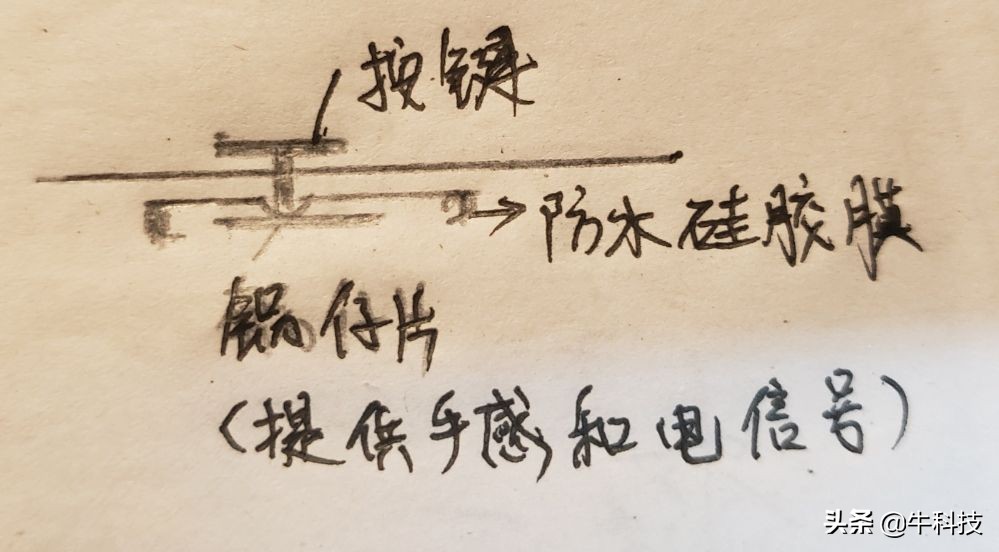 按键
防水硅胶膜
锅仔片
(提供手感和电信号)
头条 @牛科技